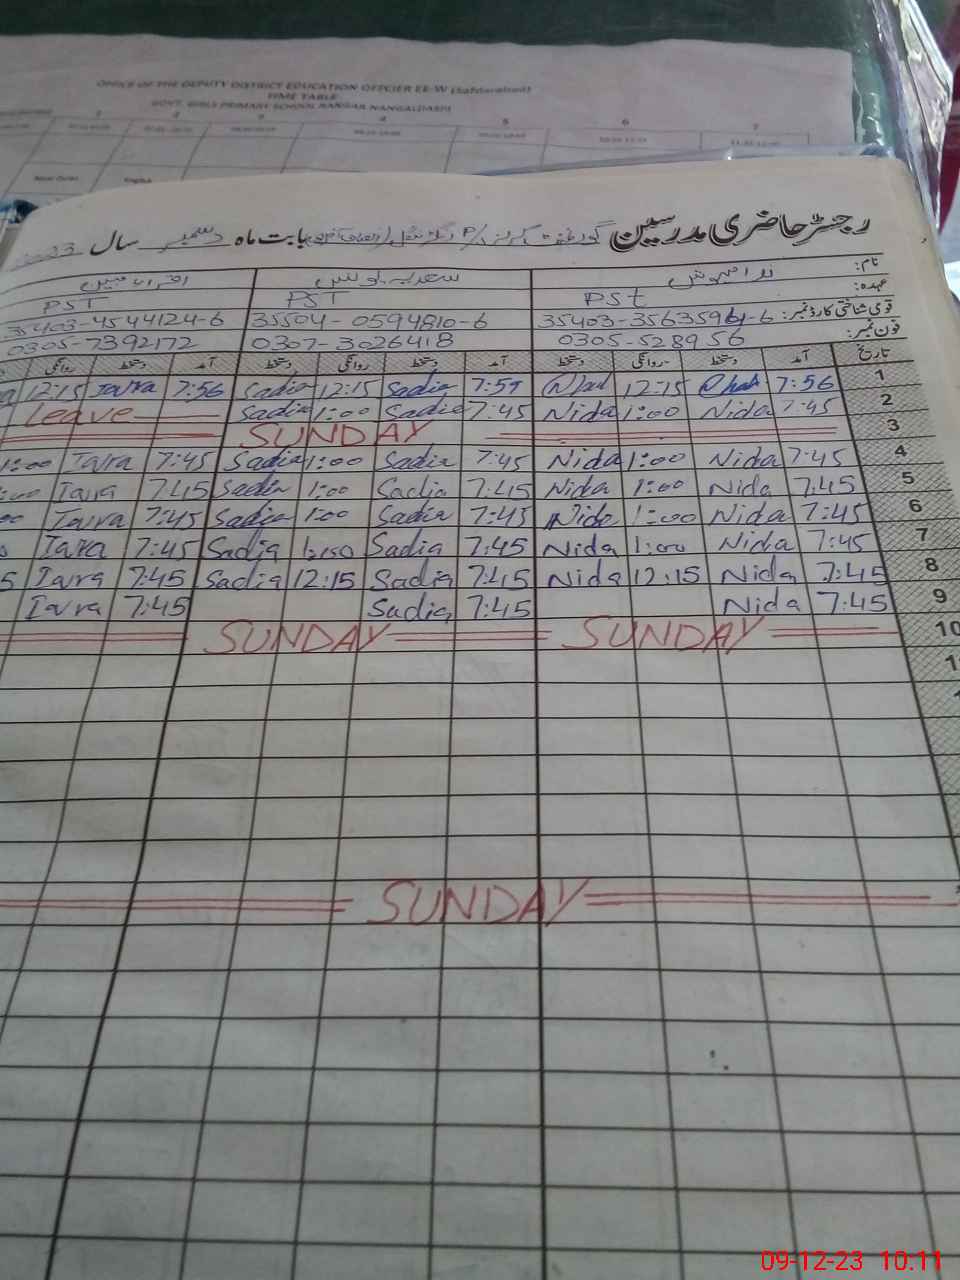 OFFICE OF THE DEPUTY DISTRICT EDUCATION OFFICER EE-W (Safdarabad)
TIME TABLE
GOVT. GIRLS PRIMARY SCHOOL RANGAR NANGAL
1 2 3 4 5 6 7
English
رجسٹر حاضری مدرسین بابت ماہ دسمبر سال
نام:
عہدہ: PSt PST PST
قومی شناختی کارڈ نمبر: 35504-0594810-6 35403-4544124-6
فون نمبر: 0305-528956 0307-3026418 0305-7392172
تاریخ آمد دستخط روانگی دستخط آمد دستخط روانگی دستخط آمد دستخط روانگی
12:15 Iqra 7:56 Sadia 12:15 Sadia 7:57 12:15 7:56 1
Leave Sadia 1:00 Sadia 7:45 Nida 1:00 Nida 7:45 2
SUNDAY 3
1:00 Iqra 7:45 Sadia 1:00 Sadia 7:45 Nida 1:00 Nida 7:45 4
Iqra 7:45 Sadia 1:00 Sadia 7:45 Nida 1:00 Nida 7:45 5
Iqra 7:45 Sadia 1:00 Sadia 7:45 Nida 1:00 Nida 7:45 6
Iqra 7:45 Sadia 1:00 Sadia 7:45 Nida 1:00 Nida 7:45 7
Iqra 7:45 Sadia 12:15 Sadia 7:45 Nida 12:15 Nida 7:45 8
Iqra 7:45 Sadia 7:45 Nida 7:45 9
SUNDAY SUNDAY 10
SUNDAY
09-12-23 10:11